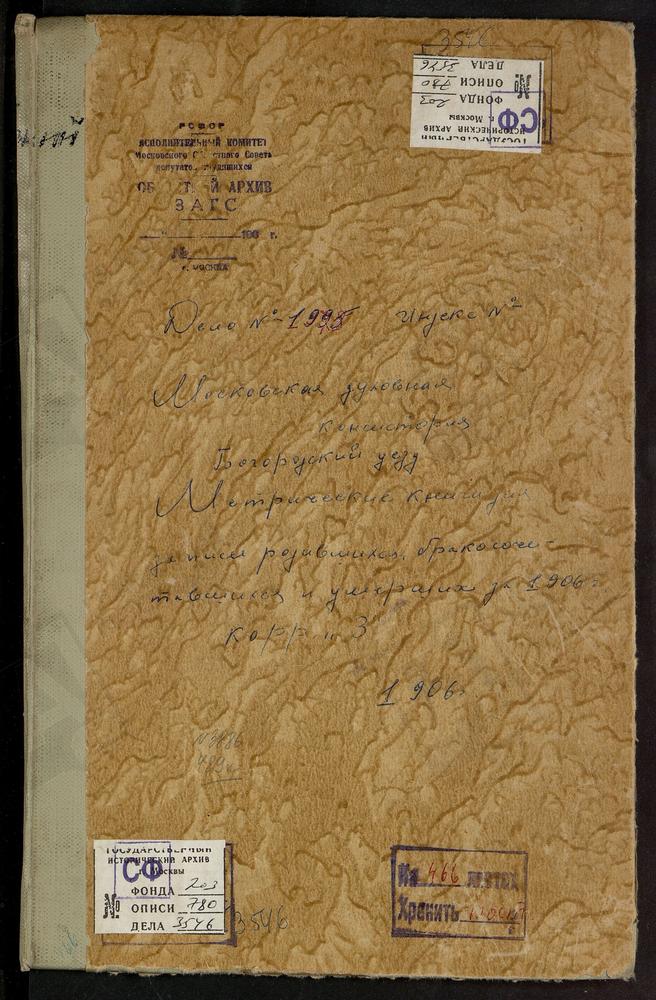 3546
ГОСУДАРСТВЕННЫЙ
ИСТОРИЧЕСКИЙ АРХИВ
г. Москвы
СФ
№
ФОНДА 203
ОПИСИ 780
ДЕЛА 3546
РСФСР
ИСПОЛНИТЕЛЬНЫЙ КОМИТЕТ
Московского Областного Совета
депутатов трудящихся
ОБ Т Й АРХИВ
ЗАГС
196 г.
№
г. МОСКВА
Дело № 1995 Индекс №
Московская духовная
консистория
Богородский уезд
Метрические книги для
записи родившихся, бракосоче-
тавшихся и умерших за 1906 г.
корр. 3
1906
ГОСУДАРСТВЕННЫЙ
ИСТОРИЧЕСКИЙ АРХИВ
г. Москвы
СФ
№
ФОНДА 203
ОПИСИ 780
ДЕЛА 3546
3546
На 466 листах
Хранить